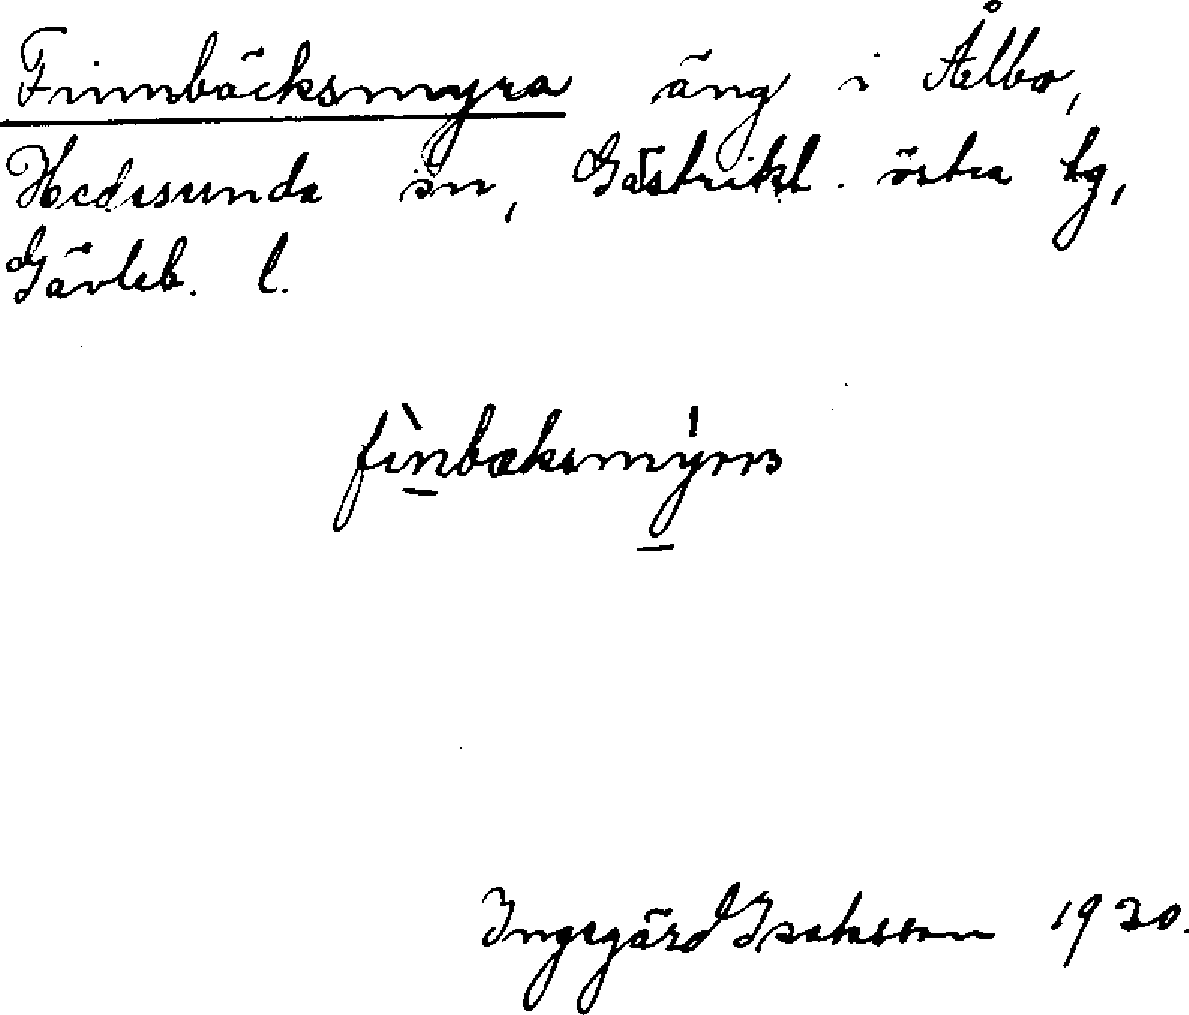 Finnbäcksmyra äng i Ålbo,
Hedesunda sn, Gästrikl. östra tg,
Gävleb. l.
fìnbæksmy̍rɷ
Ingegärd Isaksson 1930.